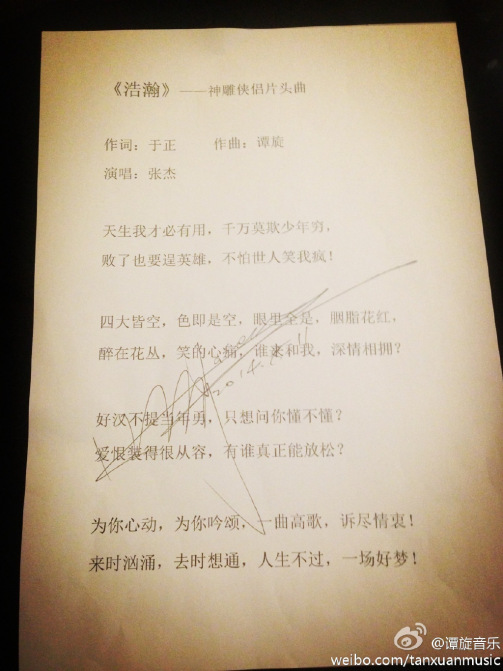 《浩瀚》——神雕侠侣片头曲
作词：于正 作曲：谭旋
演唱：张杰
天生我才必有用，千万莫欺少年穷，
败了也要逞英雄，不怕世人笑我疯！
四大皆空，色即是空，眼里全是，胭脂花红，
醉在花丛，笑的心痛，谁来和我，深情相拥？
好汉不提当年勇，只想问你懂不懂？
爱恨装得很从容，有谁真正能放松？
为你心动，为你吟颂，一曲高歌，诉尽情衷！
来时汹涌，去时想通，人生不过，一场好梦！
@谭旋音乐
weibo.com/tanxuanmusic